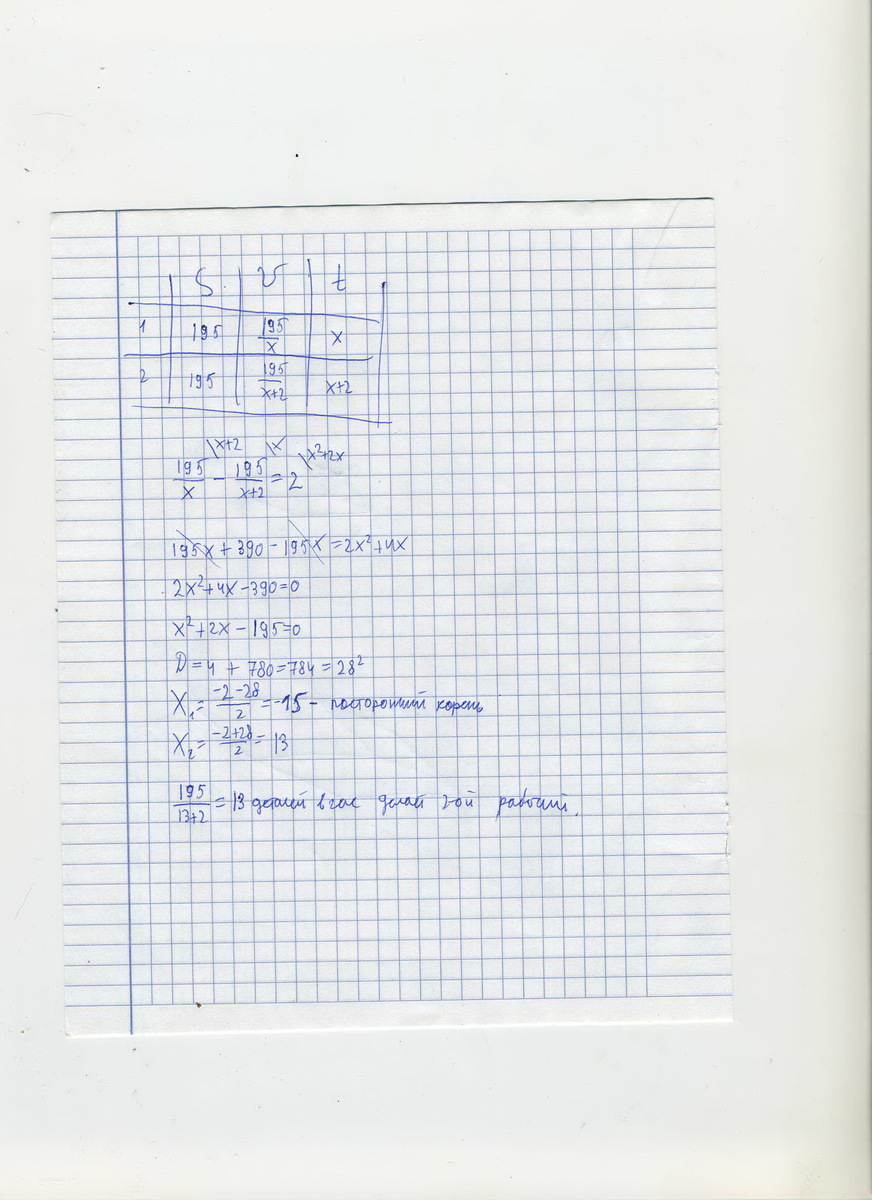 S V t
1 195 195/x x
2 195 195/(x+2) x+2
195/x \x+2 - 195/(x+2) \x = 2 \x²+2x
195x + 390 - 195x = 2x² + 4x
2x² + 4x - 390 = 0
x² + 2x - 195 = 0
D = 4 + 780 = 784 = 28²
X₁ = (-2-28)/2 = -15 - посторонний корень
X₂ = (-2+28)/2 = 13
195/(13+2) = 13 деталей в час делает 2-ой рабочий.